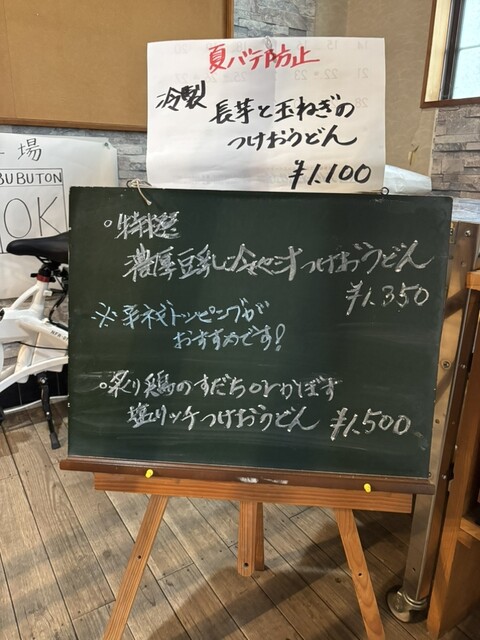 夏バテ防止
冷製 長芋と玉ねぎの
つけおうどん
¥1.100
場
BUBUTON
OK
。特製
濃厚豆乳冷やこすつけおうどん
¥1.350
※辛ネギトッピングが
おすすめです!
。炙り鶏のすだちorかぼす
塩リッチつけおうどん ¥1.500